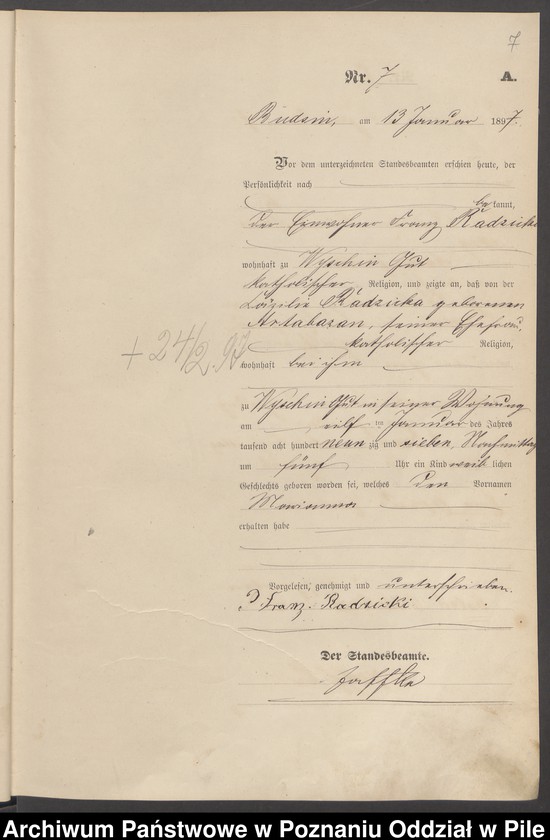 7
Nr. 7 A.
Budsin, am 13 Januar 1897.
Vor dem unterzeichneten Standesbeamten erschien heute, der
Persönlichkeit nach
be kannt,
der Einwohner Franz Radzicki
wohnhaft zu Wyschin Gut
katholischer Religion, und zeigte an, daß von der
Cäzilie Radzicka geborenen
Artabazan, seiner Ehefrau,
katholischer Religion,
+ 24/2. 97
wohnhaft bei ihm
zu Wyschin Gut in seiner Wohnung
am eilf ten Januar des Jahres
tausend acht hundert neun zig und sieben, Nachmittag
um fünf Uhr ein Kind weib lichen
Geschlechts geboren worden sei, welches den Vornamen
Marianna
erhalten habe
Vorgelesen, genehmigt und unterschrieben.
Franz Radzicki
Der Standesbeamte.
Jaffke
Archiwum Państwowe w Poznaniu Oddział w Pile